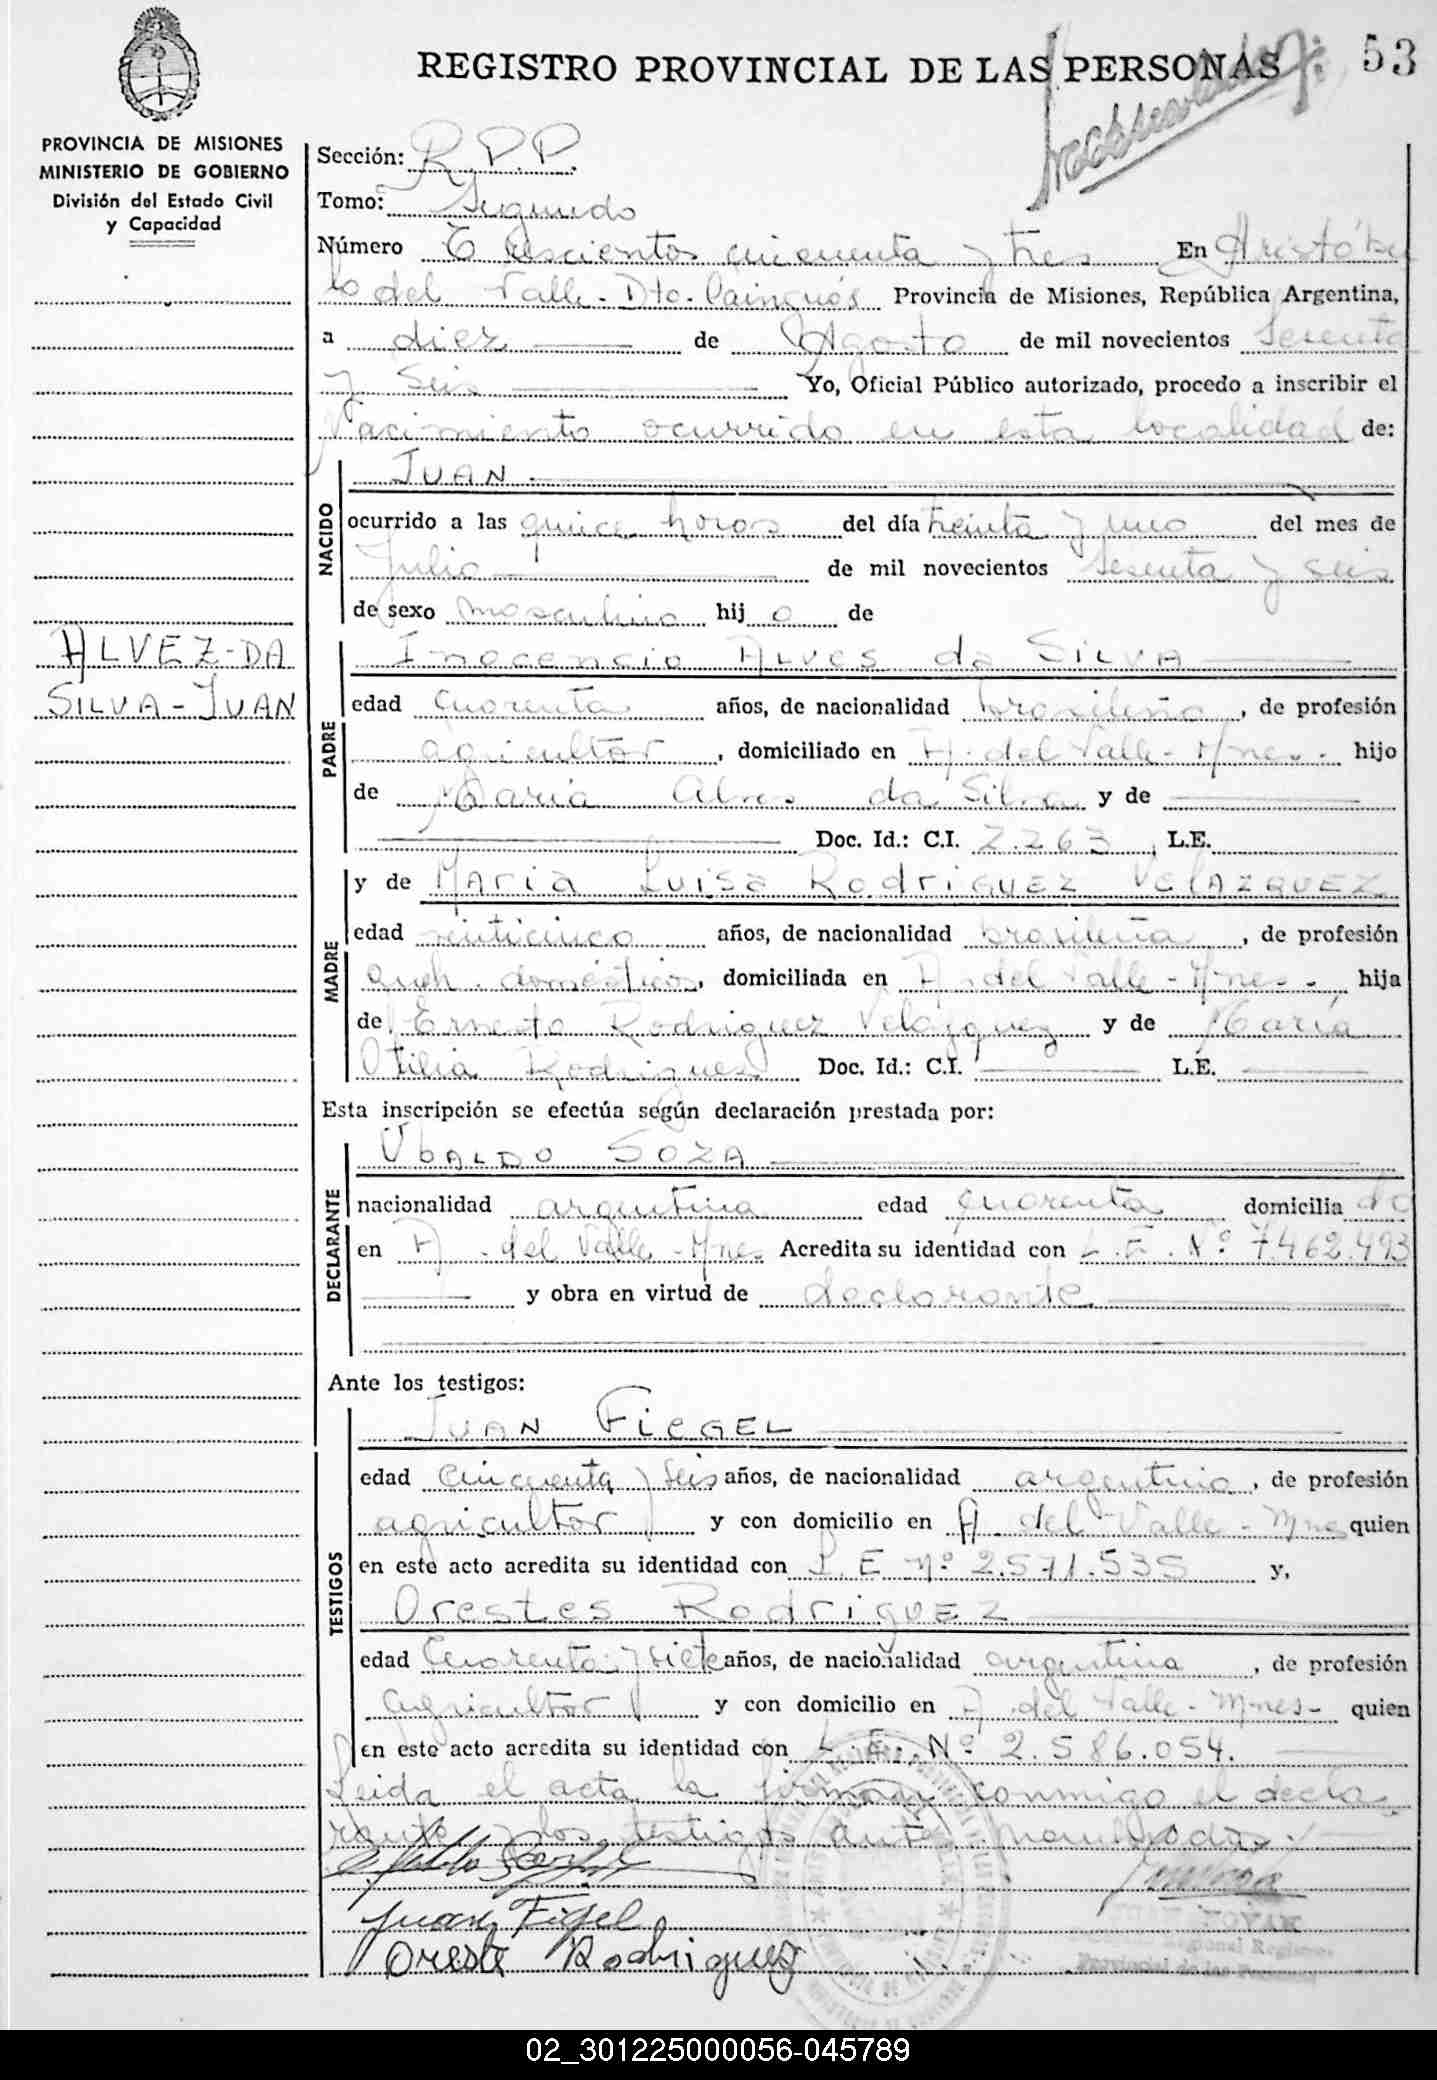 REGISTRO PROVINCIAL DE LAS PERSONAS 53
PROVINCIA DE MISIONES
MINISTERIO DE GOBIERNO
División del Estado Civil
y Capacidad
Sección: R.P.P.
Tomo: Segundo
Número Trescientos cincuenta y tres En Aristóbu
lo del Valle - Dto. Cainguás Provincia de Misiones, República Argentina,
a diez de Agosto de mil novecientos Sesenta
y Seis Yo, Oficial Público autorizado, procedo a inscribir el
Nacimiento ocurrido en esta localidad de:
NACIDO
JUAN
ocurrido a las quice horas del día treinta y uno del mes de
Julio de mil novecientos sesenta y seis
de sexo masculino hij o de
ALVEZ-DA
SILVA-JUAN
PADRE
Inocencio Alves da Silva
edad cuarenta años, de nacionalidad brasileña, de profesión
agricultor, domiciliado en A. del Valle - Mnes. hijo
de María Alves da Silva y de
Doc. Id.: C.I. 2.263, L.E.
MADRE
y de María Luisa Rodriguez Velazquez
edad veinticinco años, de nacionalidad brasileña, de profesión
queh. domésticos, domiciliada en A. del Valle - Mnes. hija
de Ernesto Rodriguez Velazquez y de María
Otilia Rodrigues Doc. Id.: C.I. L.E.
Esta inscripción se efectúa según declaración prestada por:
DECLARANTE
Ubaldo Soza
nacionalidad argentina edad cuarenta domicilia do
en A. del Valle - Mnes. Acredita su identidad con L.E. Nº 7.462.493
y obra en virtud de declarante
Ante los testigos:
TESTIGOS
Juan Fiegel
edad cincuenta y seis años, de nacionalidad argentina, de profesión
agricultor y con domicilio en A. del Valle - Mnes quien
en este acto acredita su identidad con L.E. nº 2.571.535 y,
Orestes Rodriguez
edad Cuarenta y siete años, de nacionalidad argentina, de profesión
agricultor y con domicilio en A. del Valle - Mnes - quien
en este acto acredita su identidad con L.E. Nº 2.586.054.
Leida el acta la firman conmigo el decla
rante y los testigos ante mencionados.
Juan Figel
Oreste Rodriguez
Regional Registro
Provincial de las Personas
02_301225000056-045789